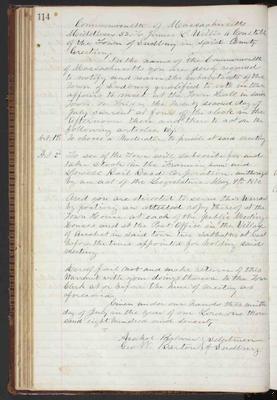 114
Commonwealth of Massachusetts
Middlesex SS. To James L. Willis a Constable
of the Town of Sudbury in said County
Greeting
In the name of the Commonwealth
of Massachusetts you are hereby required
to notify and warn the inhabitants of the
Town of Sudbury qualified to vote in town
affairs to meet at the Town Hall in said
Town on Friday the twenty second day of
July current at four of the clock in the
afternoon then and there to act on the
following articles viz.
Art. 1st To choose a Moderator to preside at said meeting
Art. 2d To see if the Town will subscribe for and
take stock in the Framingham and
Lowell Rail Road Corporation, authorized
by an act of the Legislature May 1870.
And you are directed to serve this Warrant
by posting up attested copy thereof at the
Town House at each of the public Meeting
Houses and at the Post Office in the Village
of in said Town days at least
before the time appointed for holding said
Meeting
Hereof fail not and make return of this
Warrant with your doings thereon to the Town
Clerk at or before the time of meeting as
aforesaid.
Given under our hands this ninth
day of July in the year of our Lord one thou-
sand eight hundred and seventy
Selectmen
Geo. of Sudbury